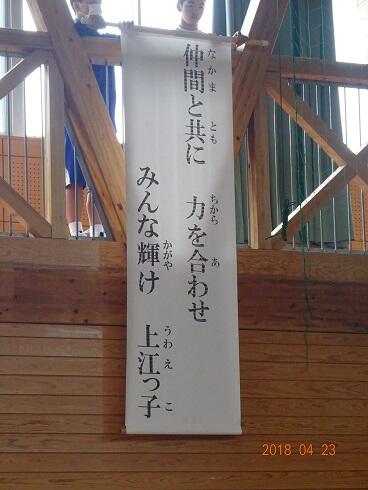 仲間と共に　力を合わせ
なかま　とも　ちから　あ
みんな輝け　上江っ子
かがや　うわえ　こ
2018 04 23